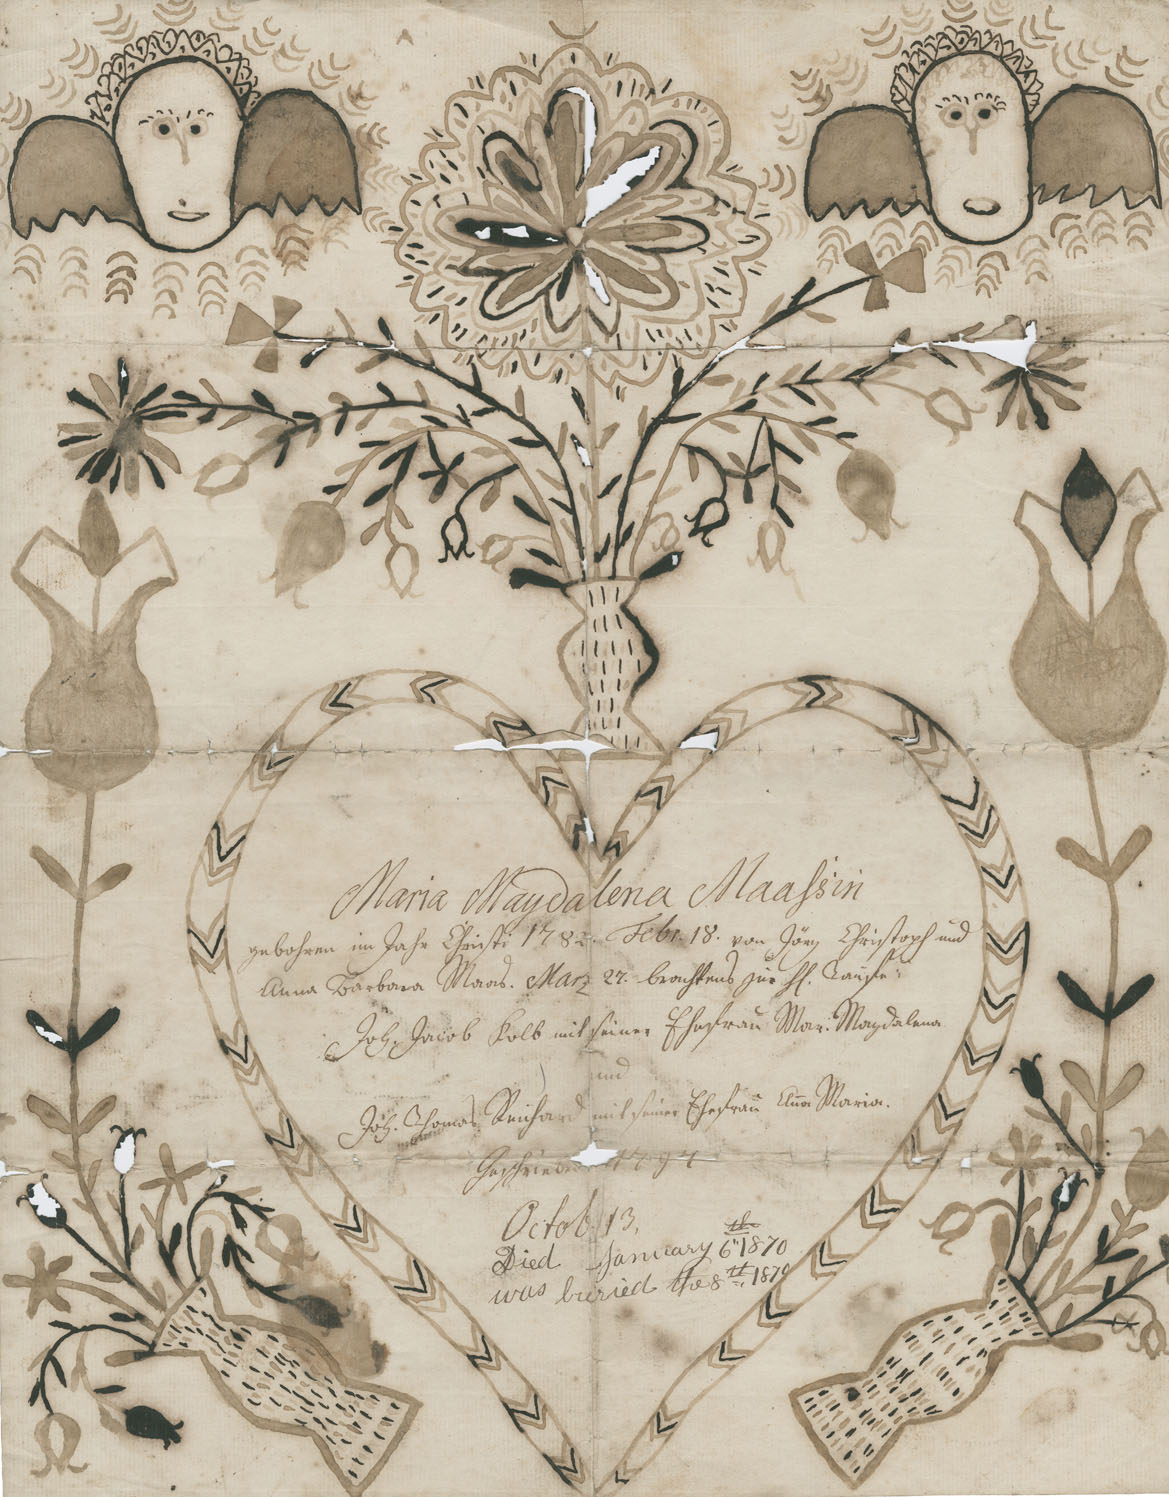 Maria Magdalena Maassin
gebohren im Jahr Christi 1782. Febr. 18. von Jörg Christoph und
Anna Barbara Maas. Marz 27. brachtens zur hl. Taufe:
Joh. Jacob Kolb mit seiner Ehefrau Mar. Magdalena
und
Joh. Thomas Reichard mit seiner Ehefrau Aña Maria.
Geschrieben 1794
Octob. 13.
Died January 6th 1870
was buried the 8th, 1870